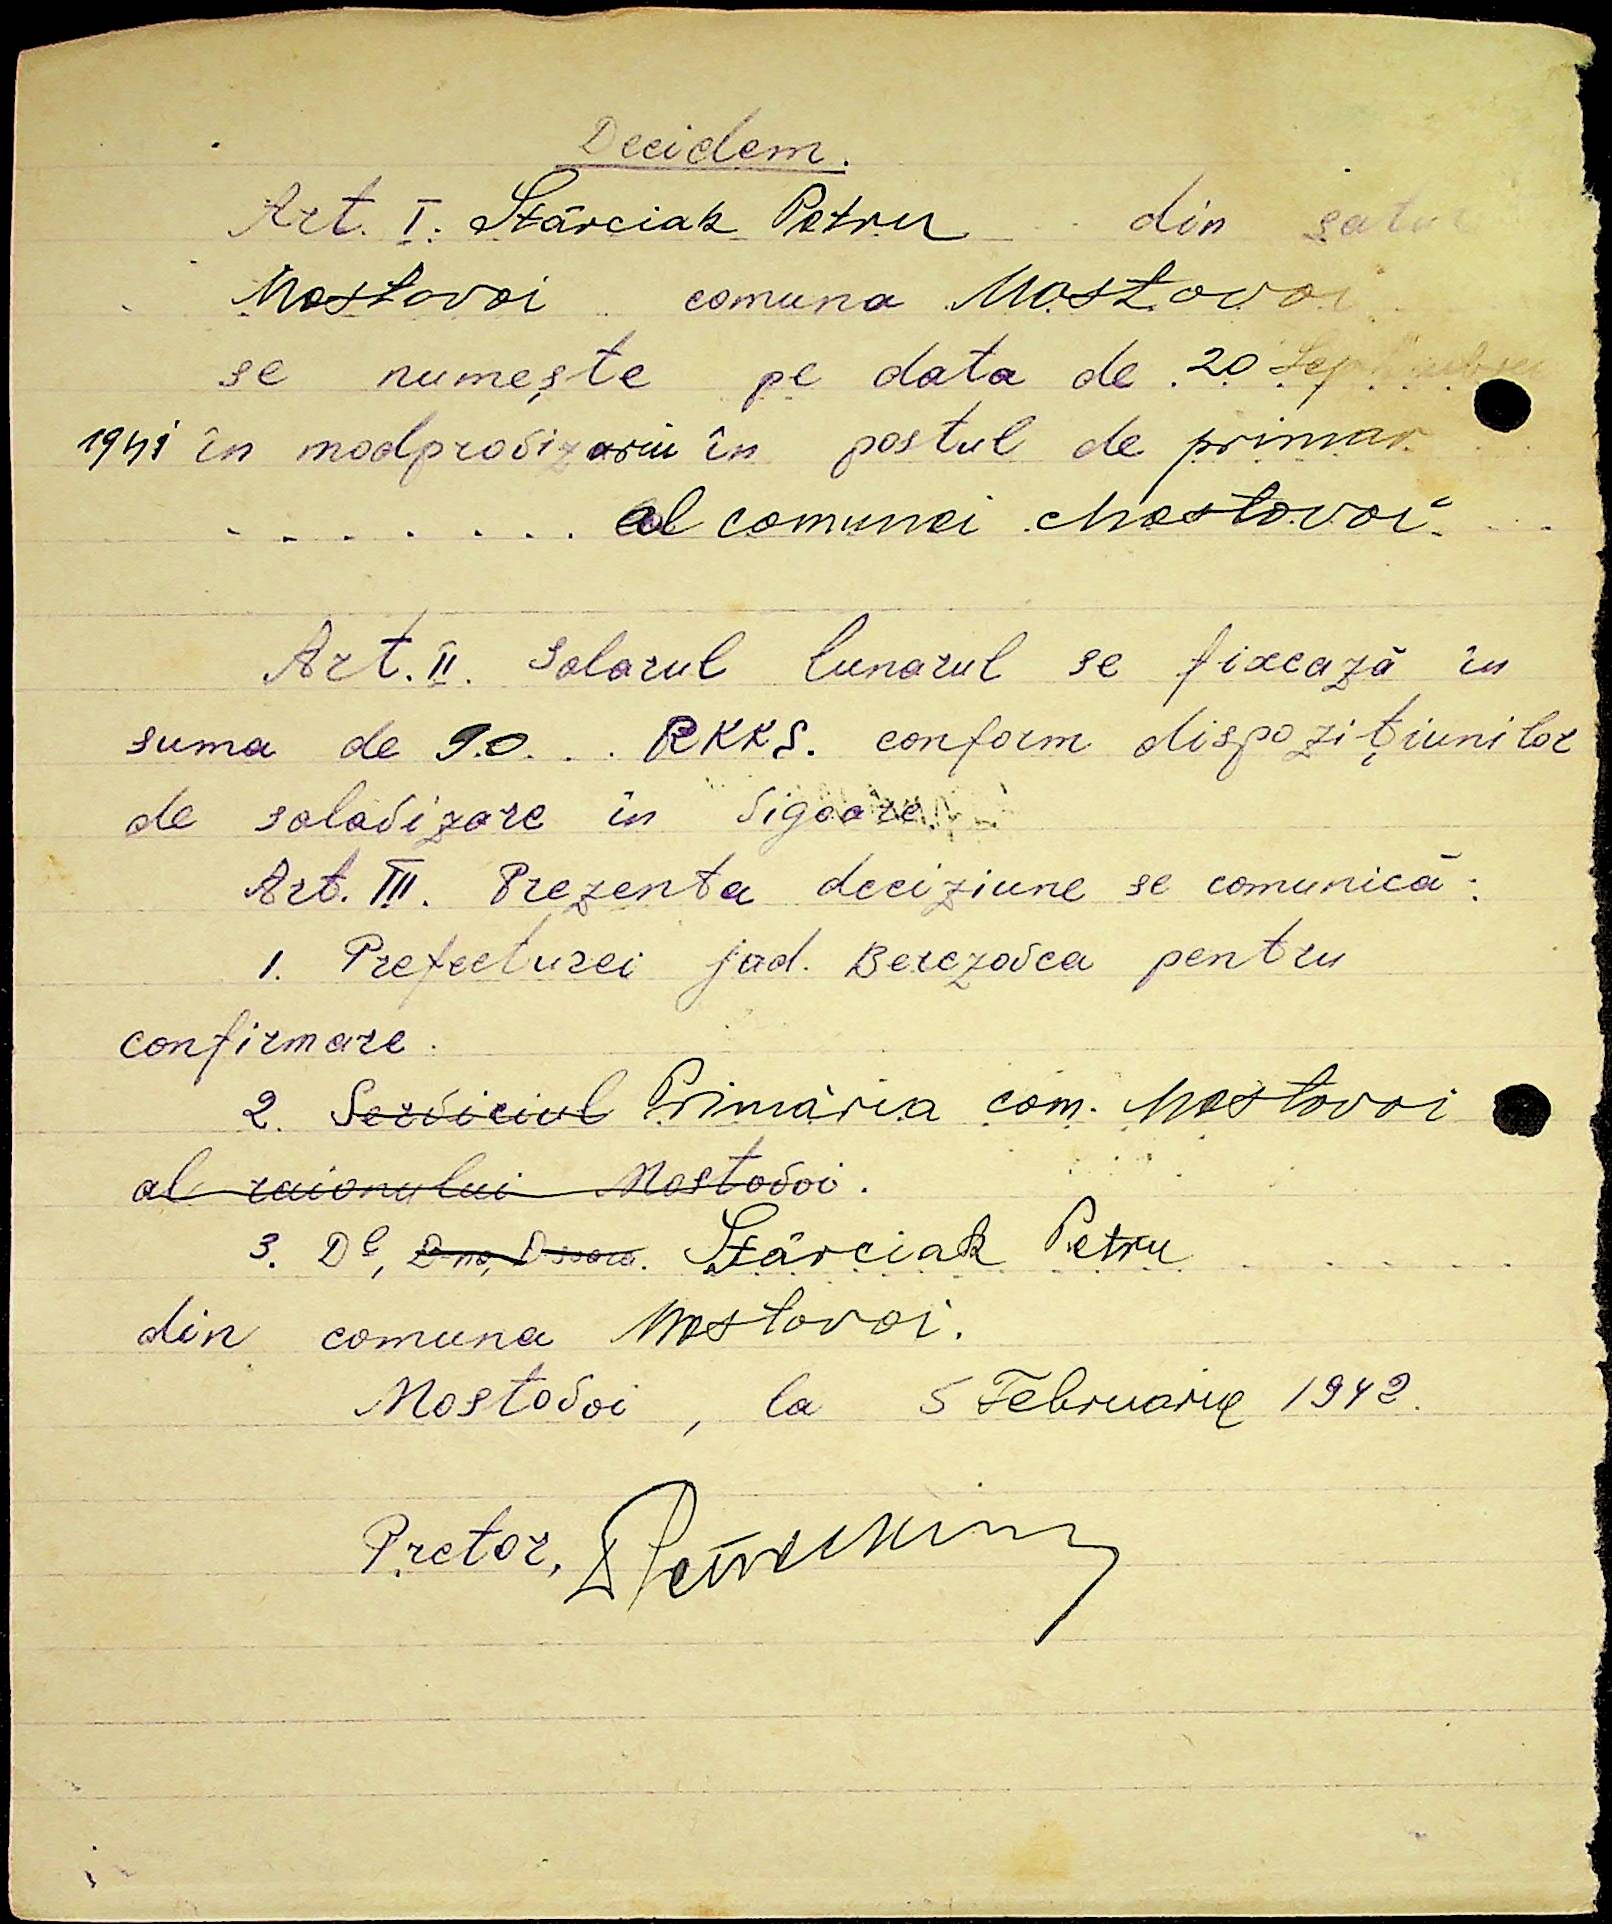 Decidem.
Art. I. Stârciak Petru din satul
Mostovoi comuna Mostovoi
se numește pe data de 20 Septembrie
1941 în modprovizoriu în postul de primar
al comunei Mostovoi
Art. II. Salarul lunarul se fixează în
suma de 90 RKKS. conform dispozițiunilor
de salavizare în vigoare
Art. III. Prezenta deciziune se comunică:
1. Prefecturei jud. Berezovca pentru
confirmare.
2. Serviciul Primăria com. Mostovoi
al raionului Mostovoi.
3. Dl, D-na, D-șoara. Stârciak Petru
din comuna Mostovoi.
Mostovoi, la 5 Februarie 1942.
Pretor,